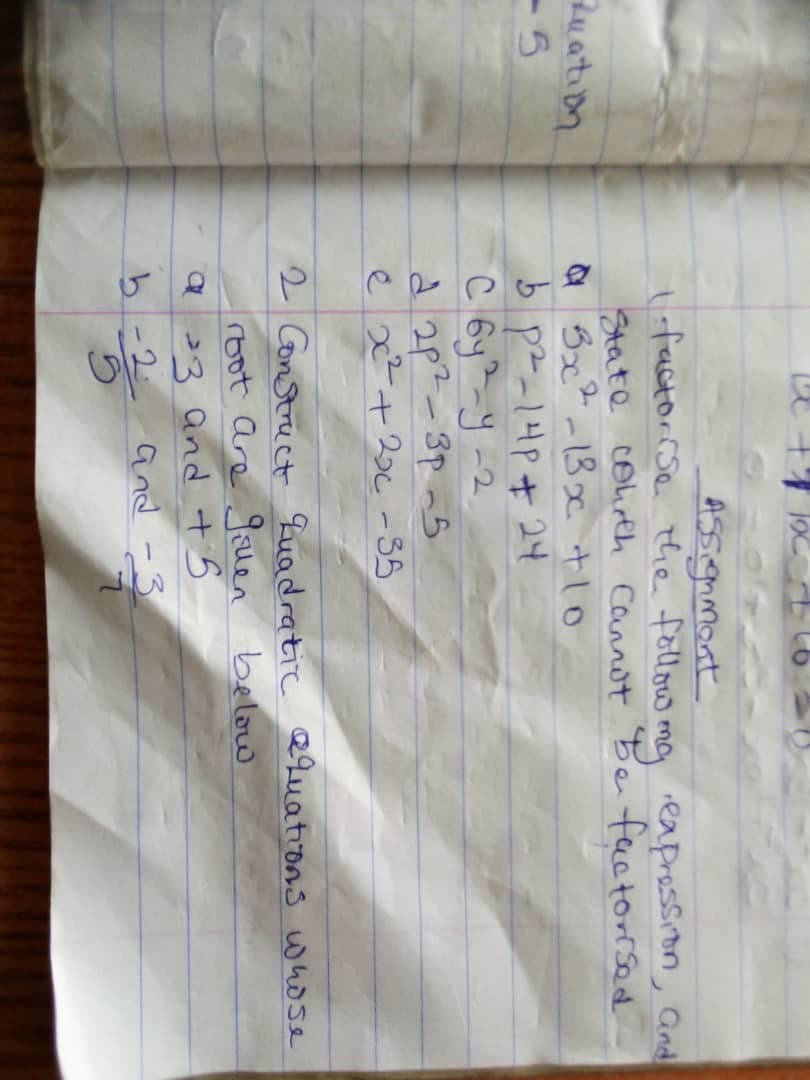 quation
- 5
Assignment
1. factorise the following expression, and
state which cannot be factorised
a 3x² - 13x + 10
b p² - 14p + 24
c 6y² - y - 2
d 2p² - 3p - 5
e x² + 2x - 35
2 Construct quadratic equations whose
root are given below
a -3 and + 5
b -2/5 and -3/7